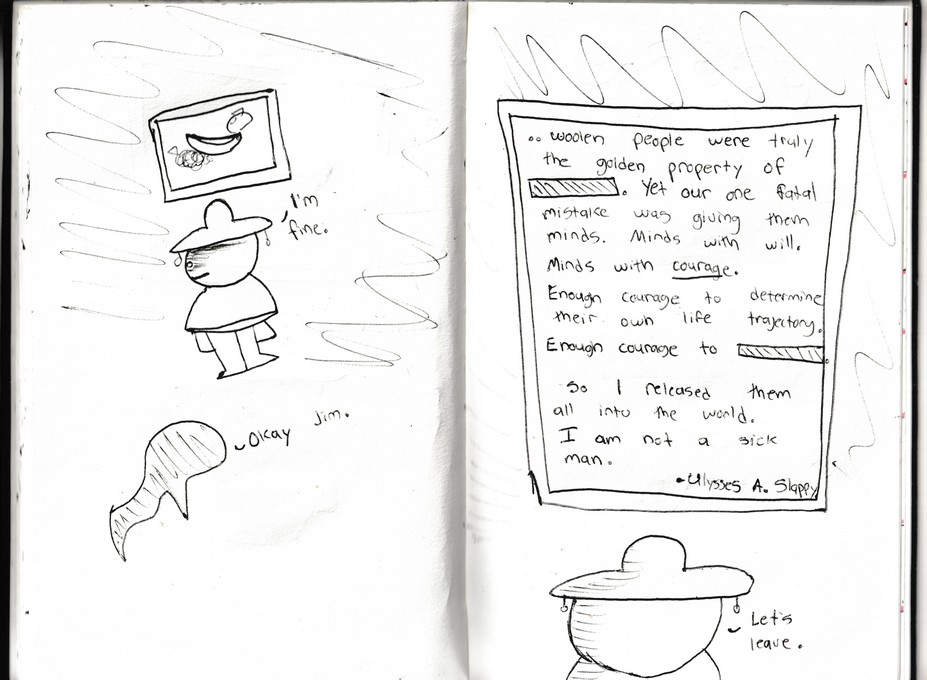 I'm
fine.
Okay Jim.
.. woolen people were truly
the golden property of
. Yet our one fatal
mistake was giving them
minds. Minds with will.
Minds with courage.
Enough courage to determine
their own life trajectory.
Enough courage to
So I released them
all into the world.
I am not a sick
man.
-Ulysses A. Slappy
Let's
leave.